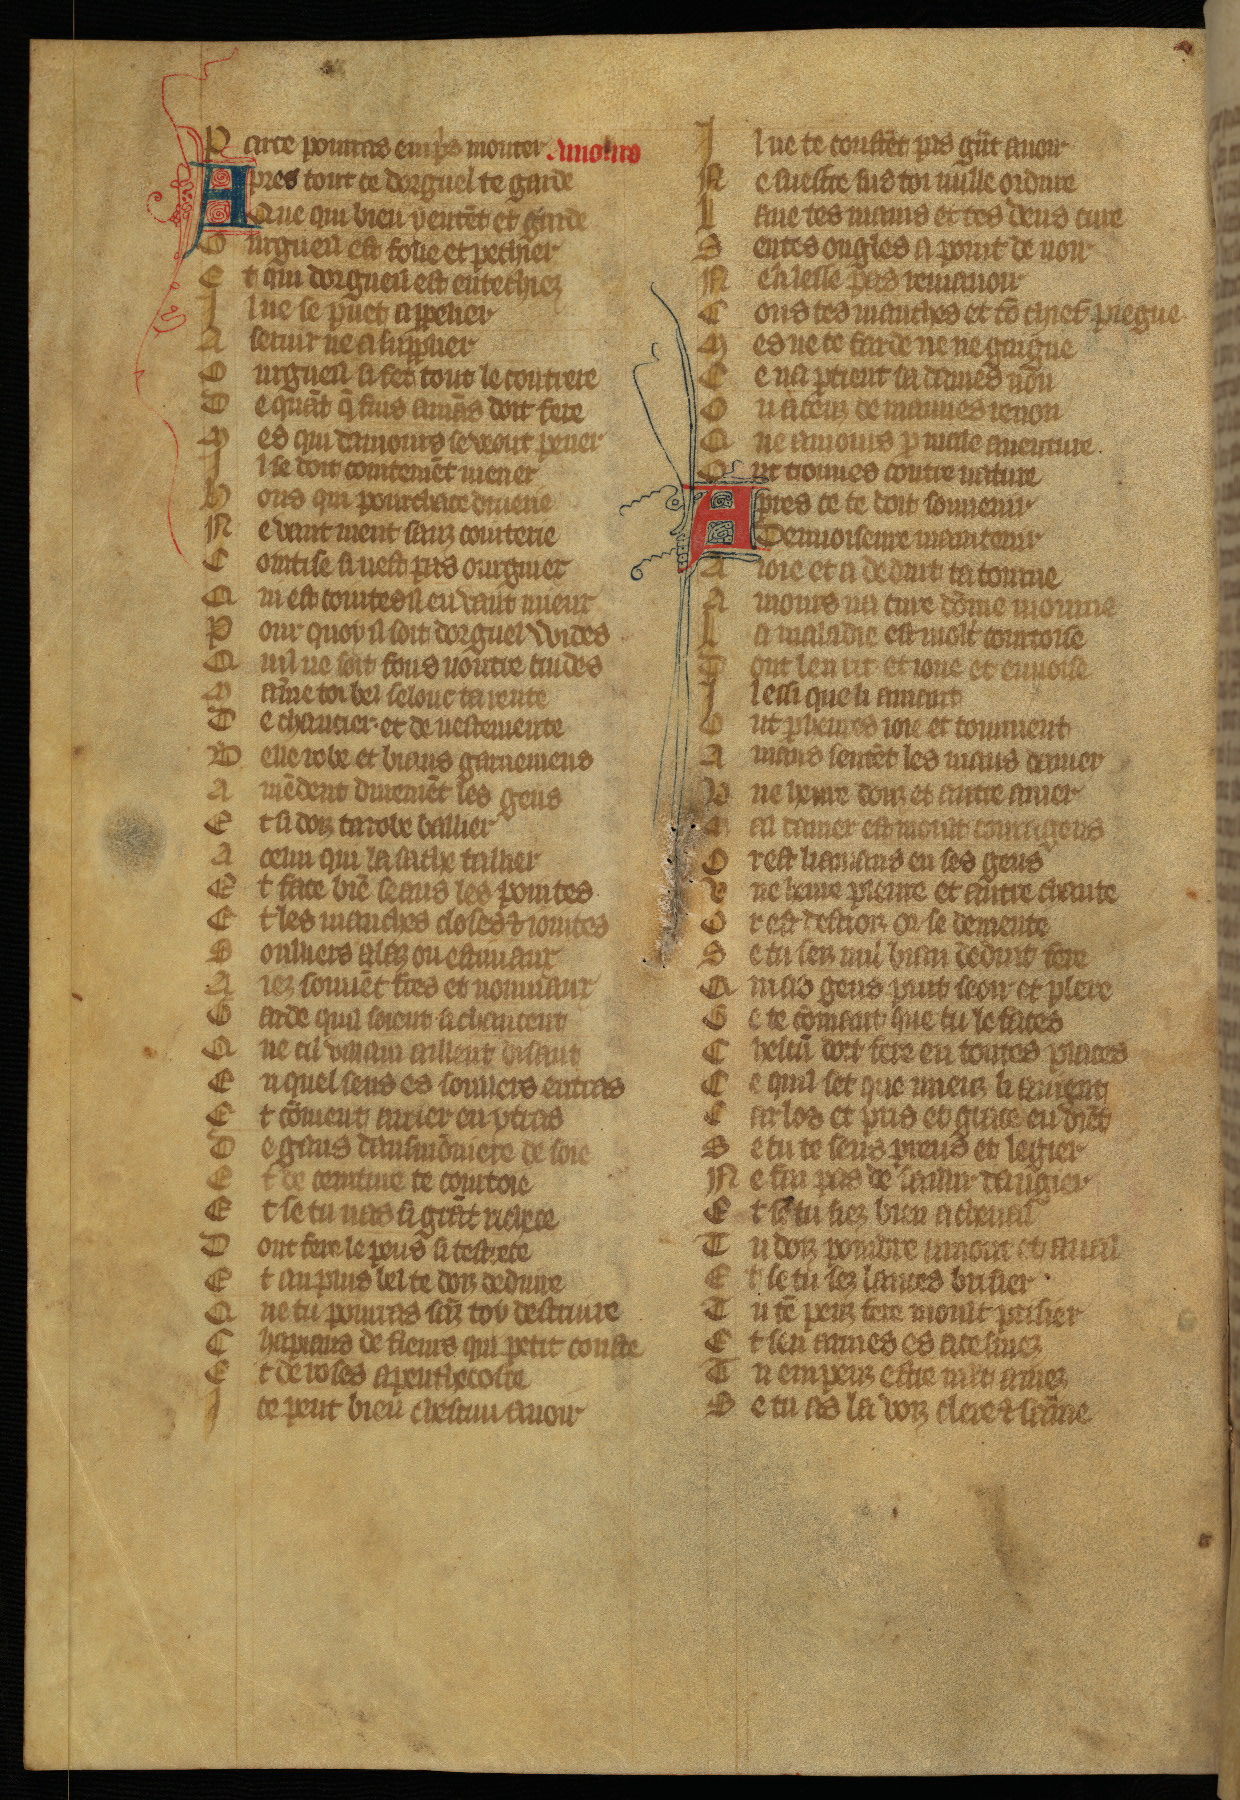 P arce pourras en pris monter Amours
Apres tout ce dorguel te garde
Que qui bien lentēt et garde
O rgueil est folie et pechiez
E t qui dorgueil est entechiez
I l ne se puet apploier
A seruir ne a supplier
O rgueil si fet tout le contrere
D e quāt q̄ fins amās doit fere
M es qui damours se veut pener
I l se doit cointemēt mener
H ons qui pourchace druerie
N e vaut nient sanz cointerie
C ointise si nest pas ourguiex
Q ui est cointes il en vaut miex
P our quoy il soit dorguel vuides
Q uil ne soit fous noutre cuides
M aine toi bel selonc ta rente
D e chaucier et de vestemente
B elle robe et biaus garnemens
A mēdent duremēt les gens
E t si doiz ta robe baillier
A celui qui la sache taillier
E t face biē seans les pointes
E t les manches closes & iointes
S oulliers a laz ou estiuaux
A iez souuēt fres et nouuiaux
G arde quil soient si chaucent
Q ue cil vilain aillent disant
E n quel sens es soulliers entras
E t cōment arrier en ystras
D e gans daumōniere de soie
E t de ceinture te cointoie
E t se tu nas si grāt richece
D ont fere le peus si testrece
E t au plus bel te doiz deduire
Q ue tu pourras sāz toy destruire
C hapiaus de fleurs qui petit couste
E t de roses a penthecoste
I ce peut bien chescun auoir
I l ne te coustēt pas grāt auoir
N e suefre sus toi nulle ordure
L aue tes mains et tes dens cure
S en tes ongles a point de noir
N e li lesse pas remanoir
C ous tes manches et tō chief piegne
M es ne te farde ne ne guigne
C e napartient sa dames nōn
O u a ceuz de mauues renon
Q ue amours par male auenture
O nt trouues contre nature
Apres ce te doit souuenir
Denuoiseure maintenir
A ioie et a deduit ta tourne
A mours na cure dōme mourne
C a maladie est molt courtoise
D ont len rit et ioue et enuoise
I l est si que li amant
O nt par heures ioie et tourment
A mans sentēt les maus damer
U ne heure douz et autre amer
M al damer est moult courageus
O r est li amans en ses geus
U ne heure pleure et autre chante
O r est destroiz or se demente
S e tu sez nul biau deduit fere
Q ui as gens puit seoir et plere
G e te cōmant que tu le faces
C hescū doit fere en toutes places
C e quil set que miex li auient
C ar los et pris et grace en viēt
S e tu te sens preus et legier
N e fai pas de saillir dangier
E t se tu siez bien a cheual
T u doiz poindre amont et aual
E t se tu sez lances brisier
T u tē peuz fere moult prisier
E t seu armes es acesmez
T u em peuz estre mlt amez
S e tu as la voiz clere & saine